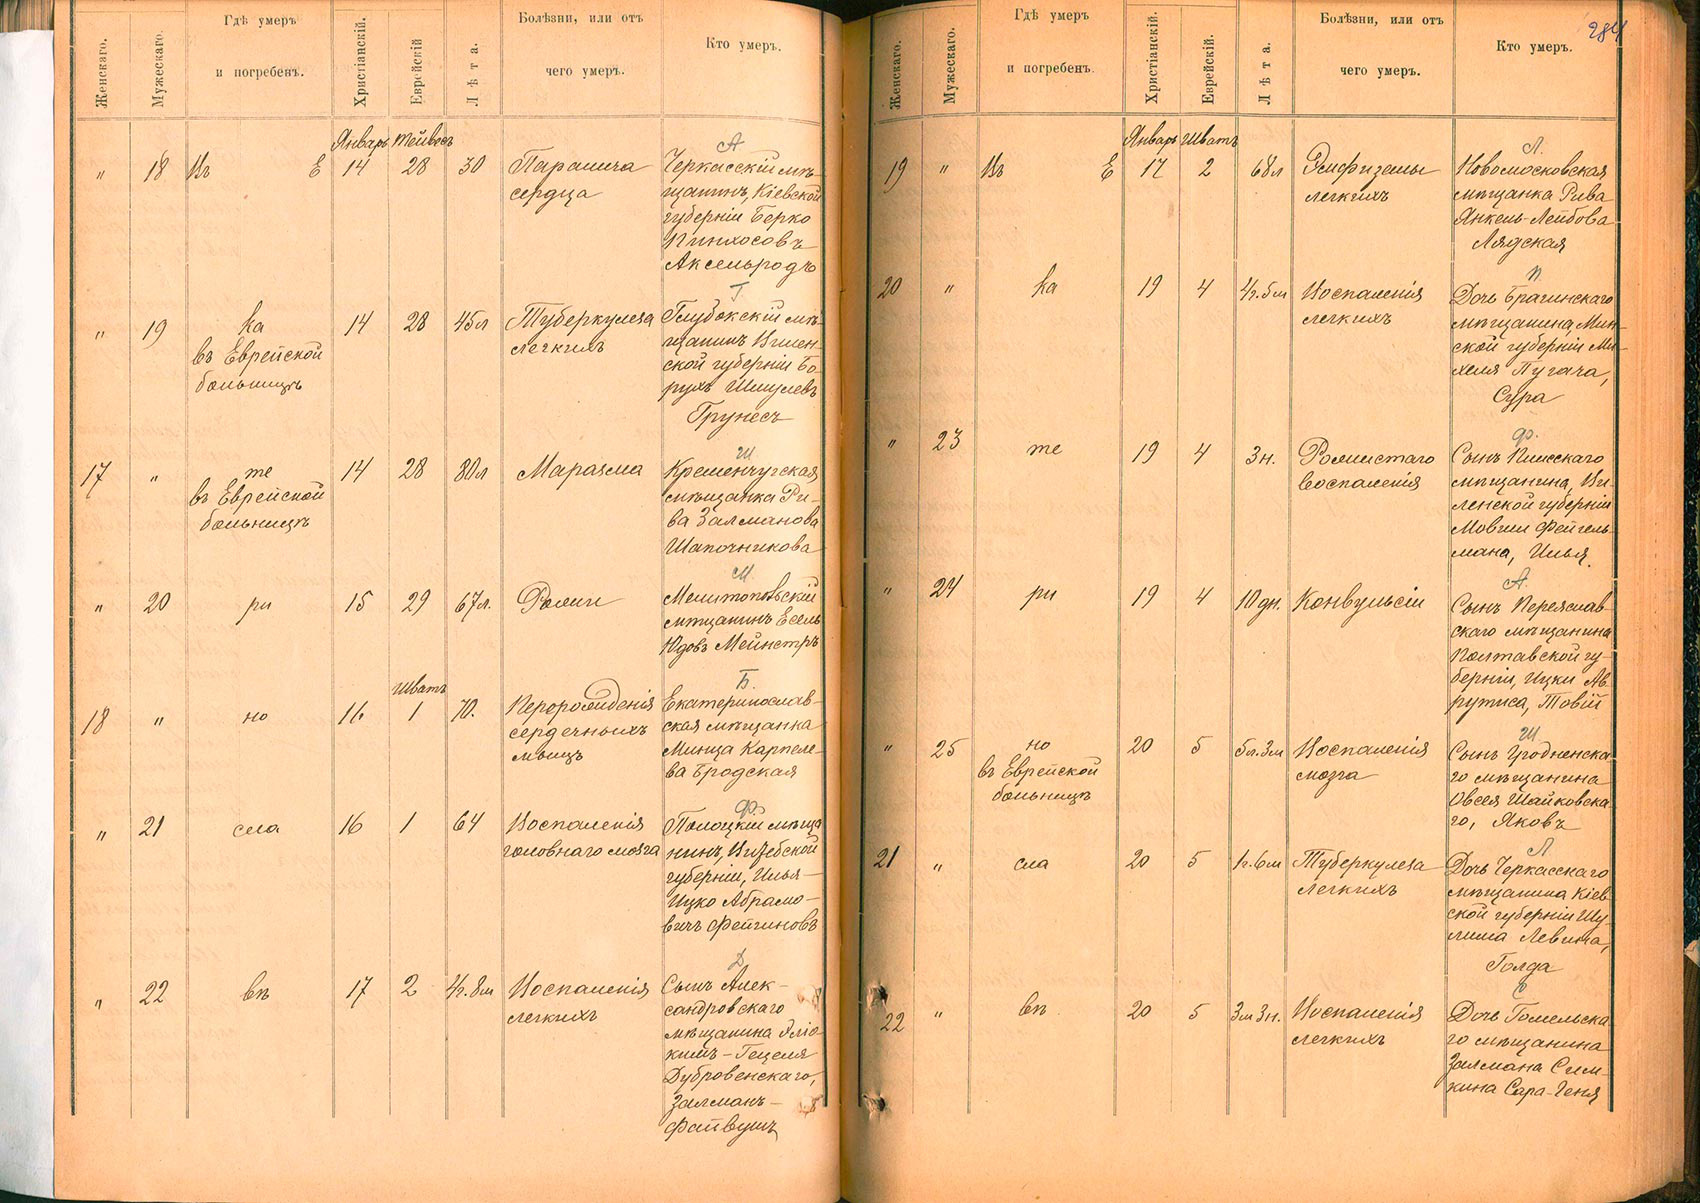 Женскаго.
Мужескаго.
Гдѣ умеръ
и погребенъ.
Христіанскій.
Еврейскій
Лѣта.
Болѣзни, или отъ
чего умеръ.
Кто умеръ.
Январь Тейвесъ
А
" 18 Въ Е 14 28 30 Паралича
сердца
Черкасскій мѣ-
щанинъ, Кіевской
губерніи Берко
Пинхосовъ
Аксельродъ
Г
" 19 ка 14 28 45л Туберкулеза
легкихъ
въ Еврейской
больницѣ
Глубокскій мѣ-
щанинъ Вилен-
ской губерніи Бо-
рухъ Шмулевъ
Грунесъ
Ш
17 " те 14 28 80л Маразма
въ Еврейской
больницѣ
Кременчугская
мѣщанка Ри-
ва Залманова
Шапочникова
М
" 20 ри 15 29 67л. Рожи
Мелитопольскій
мѣщанинъ Есель
Юдовъ Мейнстръ
Шватъ
Б.
18 " но 16 1 70. Перерожденія
сердечныхъ
мышцъ
Екатеринослав-
ская мѣщанка
Минца Карпеле-
ва Бродская
Ф.
" 21 сла 16 1 64 Воспаленія
головнаго мозга
Полоцкій мѣща
нинъ, Витебской
губерніи, Илья-
Ицко Абрамо-
вичъ Фейгиновъ
Д
" 22 вѣ 17 2 4г.8м Воспаленія
легкихъ
Сынъ Алек-
сандровскаго
мѣщанина
Гецеля
Дубровенскаго,
Залманъ-
Файвушъ
284
Женскаго.
Мужескаго.
Гдѣ умеръ
и погребенъ.
Христіанскій.
Еврейскій.
Лѣта.
Болѣзни, или отъ
чего умеръ.
Кто умеръ.
Январь Шватъ
Л.
19 " Въ Е 17 2 68л Эмфиземы
легкихъ
Новомосковская
мѣщанка Рива
Янкель-Лейбова
Лядская
П
20 " ка 19 4 4г.5м Воспаленія
легкихъ
Дочь Брагинскаго
мѣщанина, Мин-
ской губерніи Ми-
хеля Пугача,
Сура
Ф.
" 23 те 19 4 3н. Рожистаго
воспаленія
Сынъ
мѣщанина, Ви-
ленской губерніи
Мовши Фейгель-
мана, Илья.
А.
" 24 ри 19 4 10дн. Конвульсіи
Сынъ Переяслав-
скаго мѣщанина
Полтавской гу-
берніи, Ицки Ав-
рутиса, Товій
Ш
" 25 но 20 5 5л.3м Воспаленія
мозга
въ Еврейской
больницѣ
Сынъ Гродненска-
го мѣщанина
Овсея Шайковска-
го, Яковъ
Л
21 " сла 20 5 1г.6м Туберкулеза
легкихъ
Дочь Черкасскаго
мѣщанина Кіев-
ской губерніи Шу-
лима Левина,
Голда
С
22 " вѣ 20 5 3м3н. Воспаленія
легкихъ
Дочь Гомельска-
го мѣщанина
Залмана Сим-
кина Сара-Геня